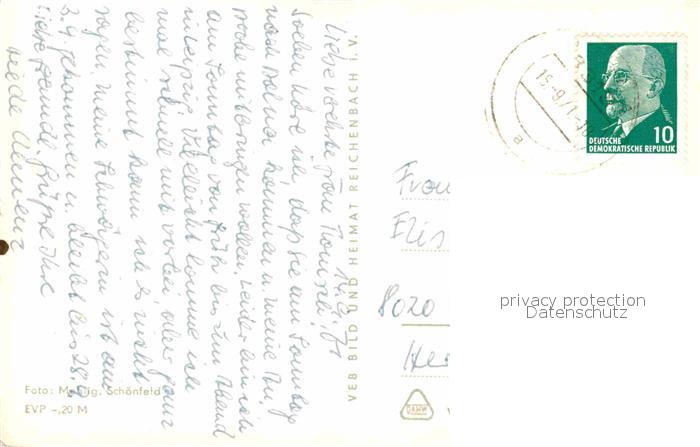 14.9.71
Liebe verehrte Frau
Soeben höre ich, daß Sie am Sonntag
nach kommen u. meine
mitbringen wollen. Leider bin ich
am Sonntag von früh bis zum Abend
in Leipzig. Vielleicht komme ich
mal schnell mit vorbei, oder ganz
bestimmt kann ich es nicht
sagen. Meine Schwägerin ist am
3.9. gekommen u. bleibt bis 28.9.
Liebe freundl. Grüße Ihre
VEB BILD UND HEIMAT REICHENBACH I. V.
Foto: Schönfeld
EVP -,20 M
10
DEUTSCHE
DEMOKRATISCHE REPUBLIK
Frau
Elis
8020
privacy protection
Datenschutz